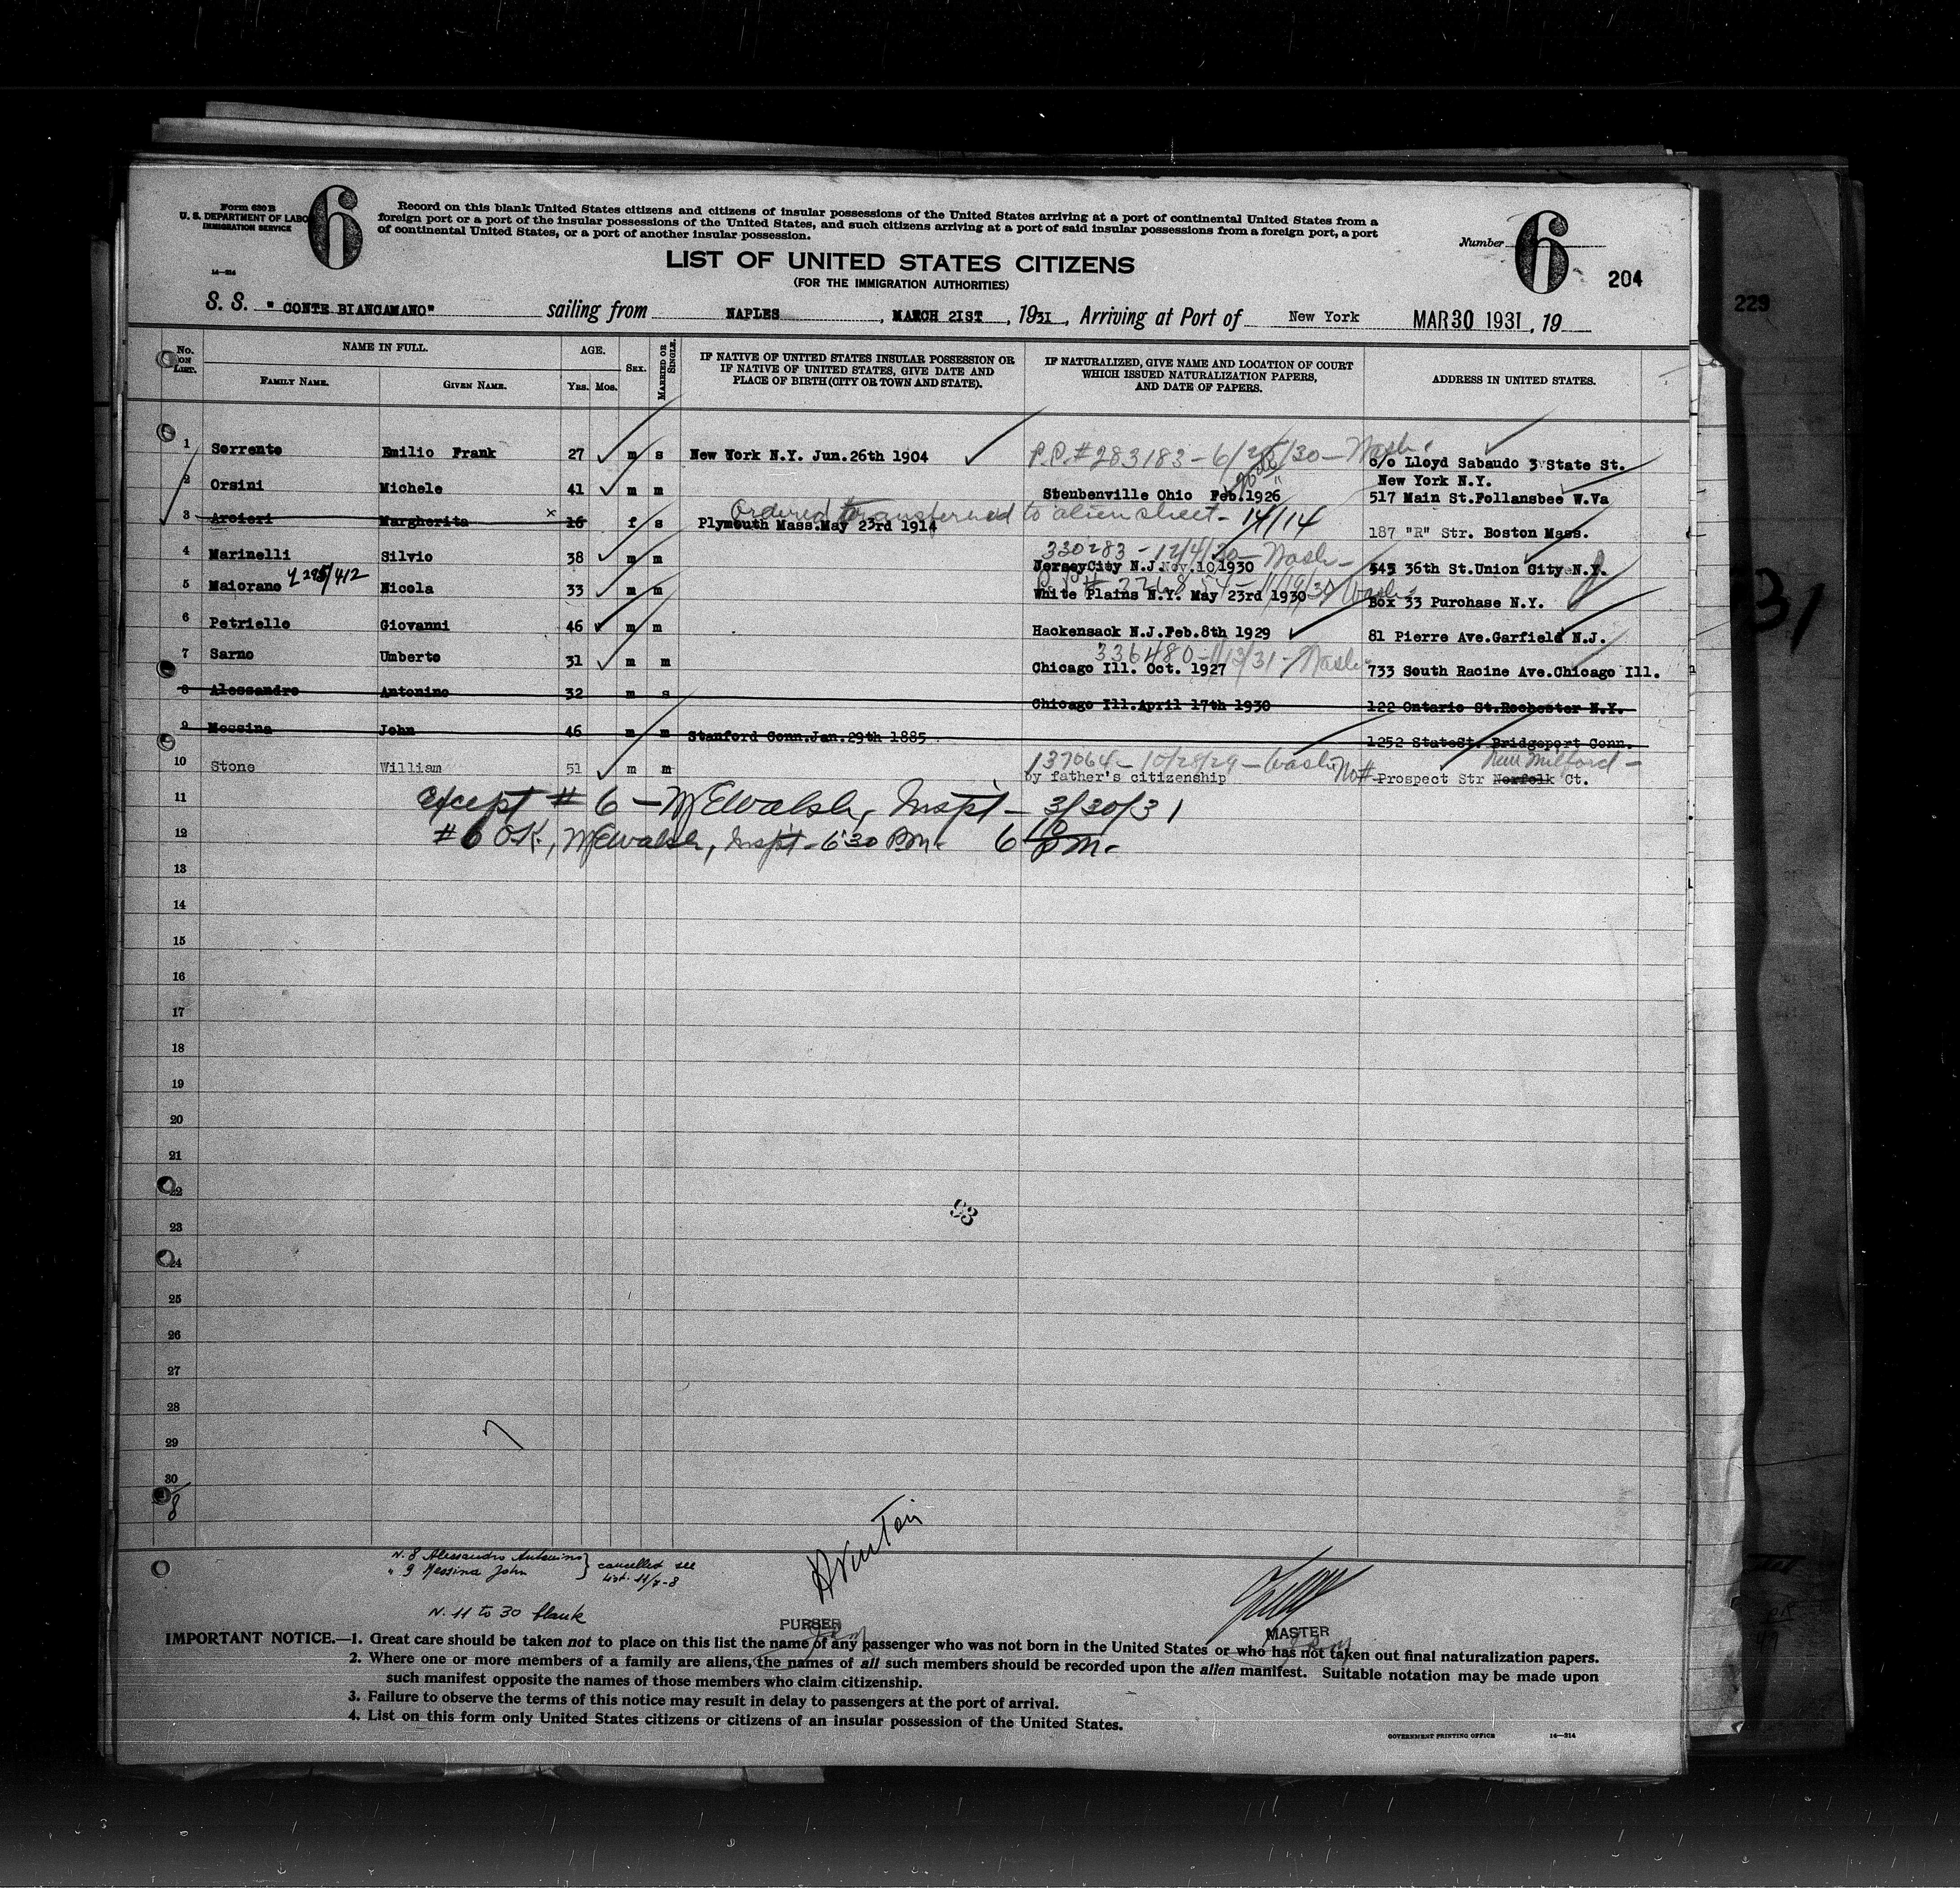 Form 630 B
U. S. DEPARTMENT OF LABO
IMMIGRATION SERVICE
14—214
6
Record on this blank United States citizens and citizens of insular possessions of the United States arriving at a port of continental United States from a
foreign port or a port of the insular possessions of the United States, and such citizens arriving at a port of said insular possessions from a foreign port, a port
of continental United States, or a port of another insular possession.
Number 6
204
229
LIST OF UNITED STATES CITIZENS
(FOR THE IMMIGRATION AUTHORITIES)
S. S. "CONTE BIANCAMANO" sailing from NAPLES, MARCH 21ST, 1931, Arriving at Port of New York MAR 30 1931, 19
No. ON LIST. NAME IN FULL. AGE. SEX. MARRIED OR SINGLE. IF NATIVE OF UNITED STATES INSULAR POSSESSION OR IF NATIVE OF UNITED STATES, GIVE DATE AND PLACE OF BIRTH (CITY OR TOWN AND STATE). IF NATURALIZED, GIVE NAME AND LOCATION OF COURT WHICH ISSUED NATURALIZATION PAPERS, AND DATE OF PAPERS. ADDRESS IN UNITED STATES.
FAMILY NAME. GIVEN NAME. YRS. MOS.
1 Sorrente Emilio Frank 27 m s New York N.Y. Jun.26th 1904 P.P.#283183-6/25/30-Wash. c/o Lloyd Sabaudo 3 State St.
New York N.Y.
2 Orsini Michele 41 m m Steubenville Ohio Feb.1926 517 Main St.Follansbee W.Va
Ordered transferred to alien sheet- 14/14
3 Arcieri Margherita x 16 f s Plymouth Mass.May 23rd 1914 187 "R" Str. Boston Mass.
330283-12/4/30-Wash-
4 Marinelli Silvio 38 m m JerseyCity N.J.Nov.101930 545 36th St.Union City N.Y.
5 Maiorano Nicola 33 m m White Plains N.Y. May 23rd 1930 Box 33 Purchase N.Y.
6 Petriello Giovanni 46 m m Hackensack N.J.Feb.8th 1929 81 Pierre Ave.Garfield N.J.
336480-1/13/31-Wash-
7 Sarno Umberto 31 m m Chicago Ill. Oct. 1927 733 South Racine Ave.Chicago Ill.
8 Alessandro Antonino 32 m s Chicago Ill.April 17th 1930 122 Ontario St.Rochester N.Y.
9 Messina John 46 m m Stanford Conn.Jan.29th 1885 1252 StateSt. Bridgeport Conn.
137064-10/28/29-Wash New Milford-
10 Stone William 51 m m by father's citizenship No# Prospect Str Norfolk Ct.
11 except #6 - McEwalsh, Inspt- 3/30/31
12 #6 OK, McEwalsh, Inspt-6:30 Pm- 6 10 pm-
13
14
15
16
17
18
19
20
21
22
23
24
25
26
27
28
29
30
93
8
N. 8 Alessandro Antonino } cancelled see
" 9 Messina John list 11/7-8
N. 11 to 30 blank
PURSER
MASTER
IMPORTANT NOTICE.—1. Great care should be taken not to place on this list the name of any passenger who was not born in the United States or who has not taken out final naturalization papers.
2. Where one or more members of a family are aliens, the names of all such members should be recorded upon the alien manifest. Suitable notation may be made upon
such manifest opposite the names of those members who claim citizenship.
3. Failure to observe the terms of this notice may result in delay to passengers at the port of arrival.
4. List on this form only United States citizens or citizens of an insular possession of the United States.
GOVERNMENT PRINTING OFFICE 14—214